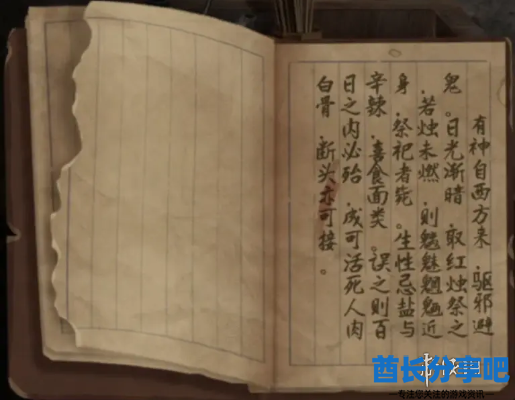 有神自西方来,驱邪避
鬼。日光渐暗,取红烛祭之
,若烛未燃,则魑魅魍魉近
身,祭祀者毙。生性忌盐与
辛辣,喜食面类。误之则百
日之内必殆,成可活死人肉
白骨,断头亦可接。
酋长分享吧
专注您关注的游戏资讯